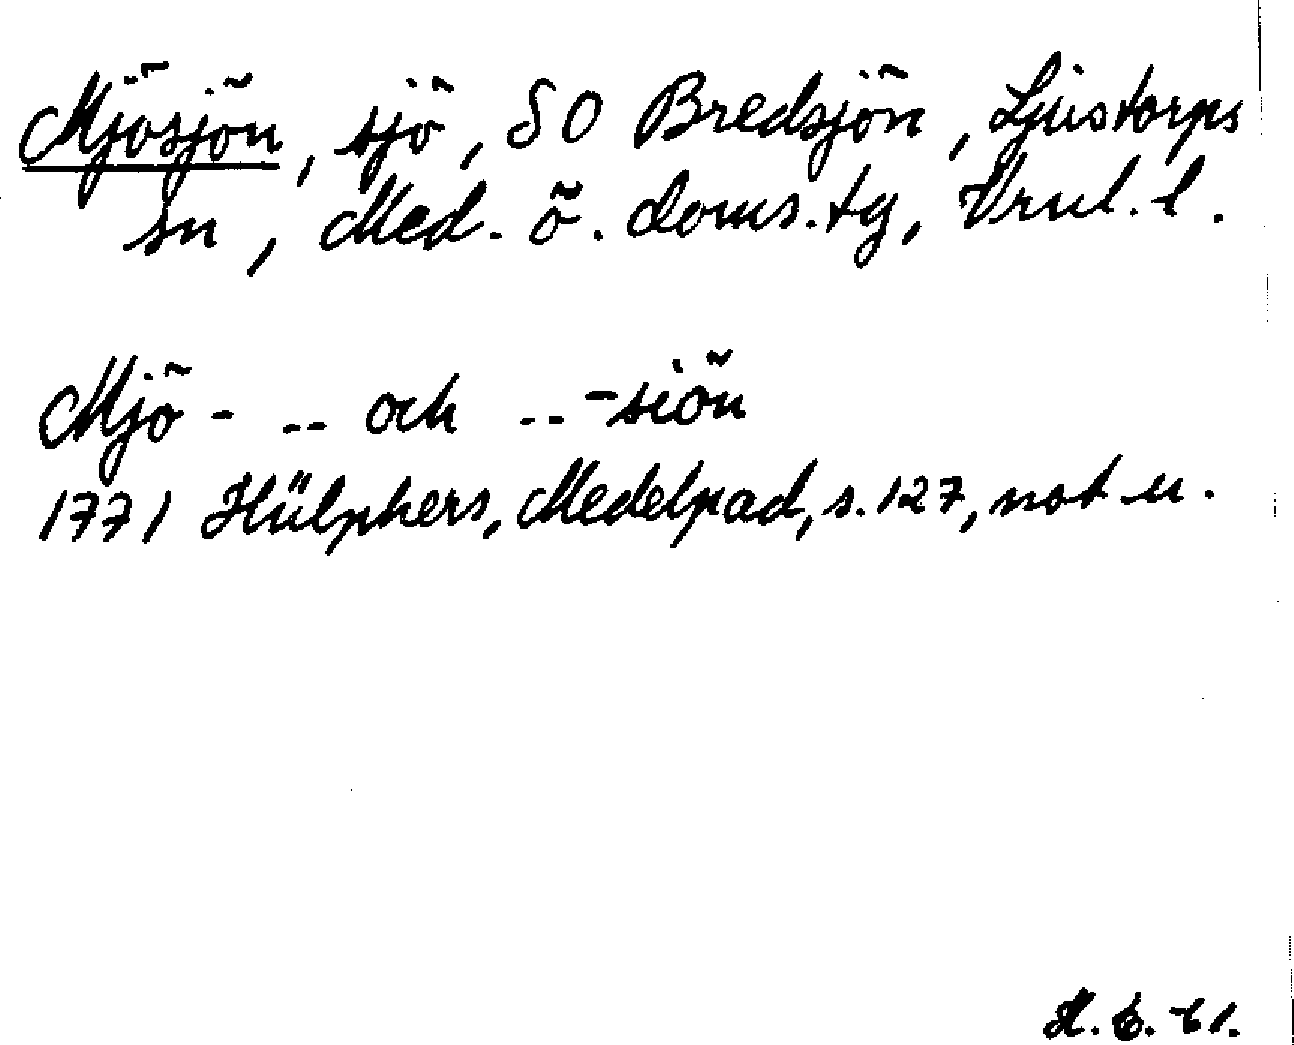 Mjösjön, sjö, SO Bredsjön, Ljustorps
sn, Med. ö. doms.tg, Vrnl. l.
Mjö- -- och -- -siön
1771 Hülphers, Medelpad, s. 127, not u.